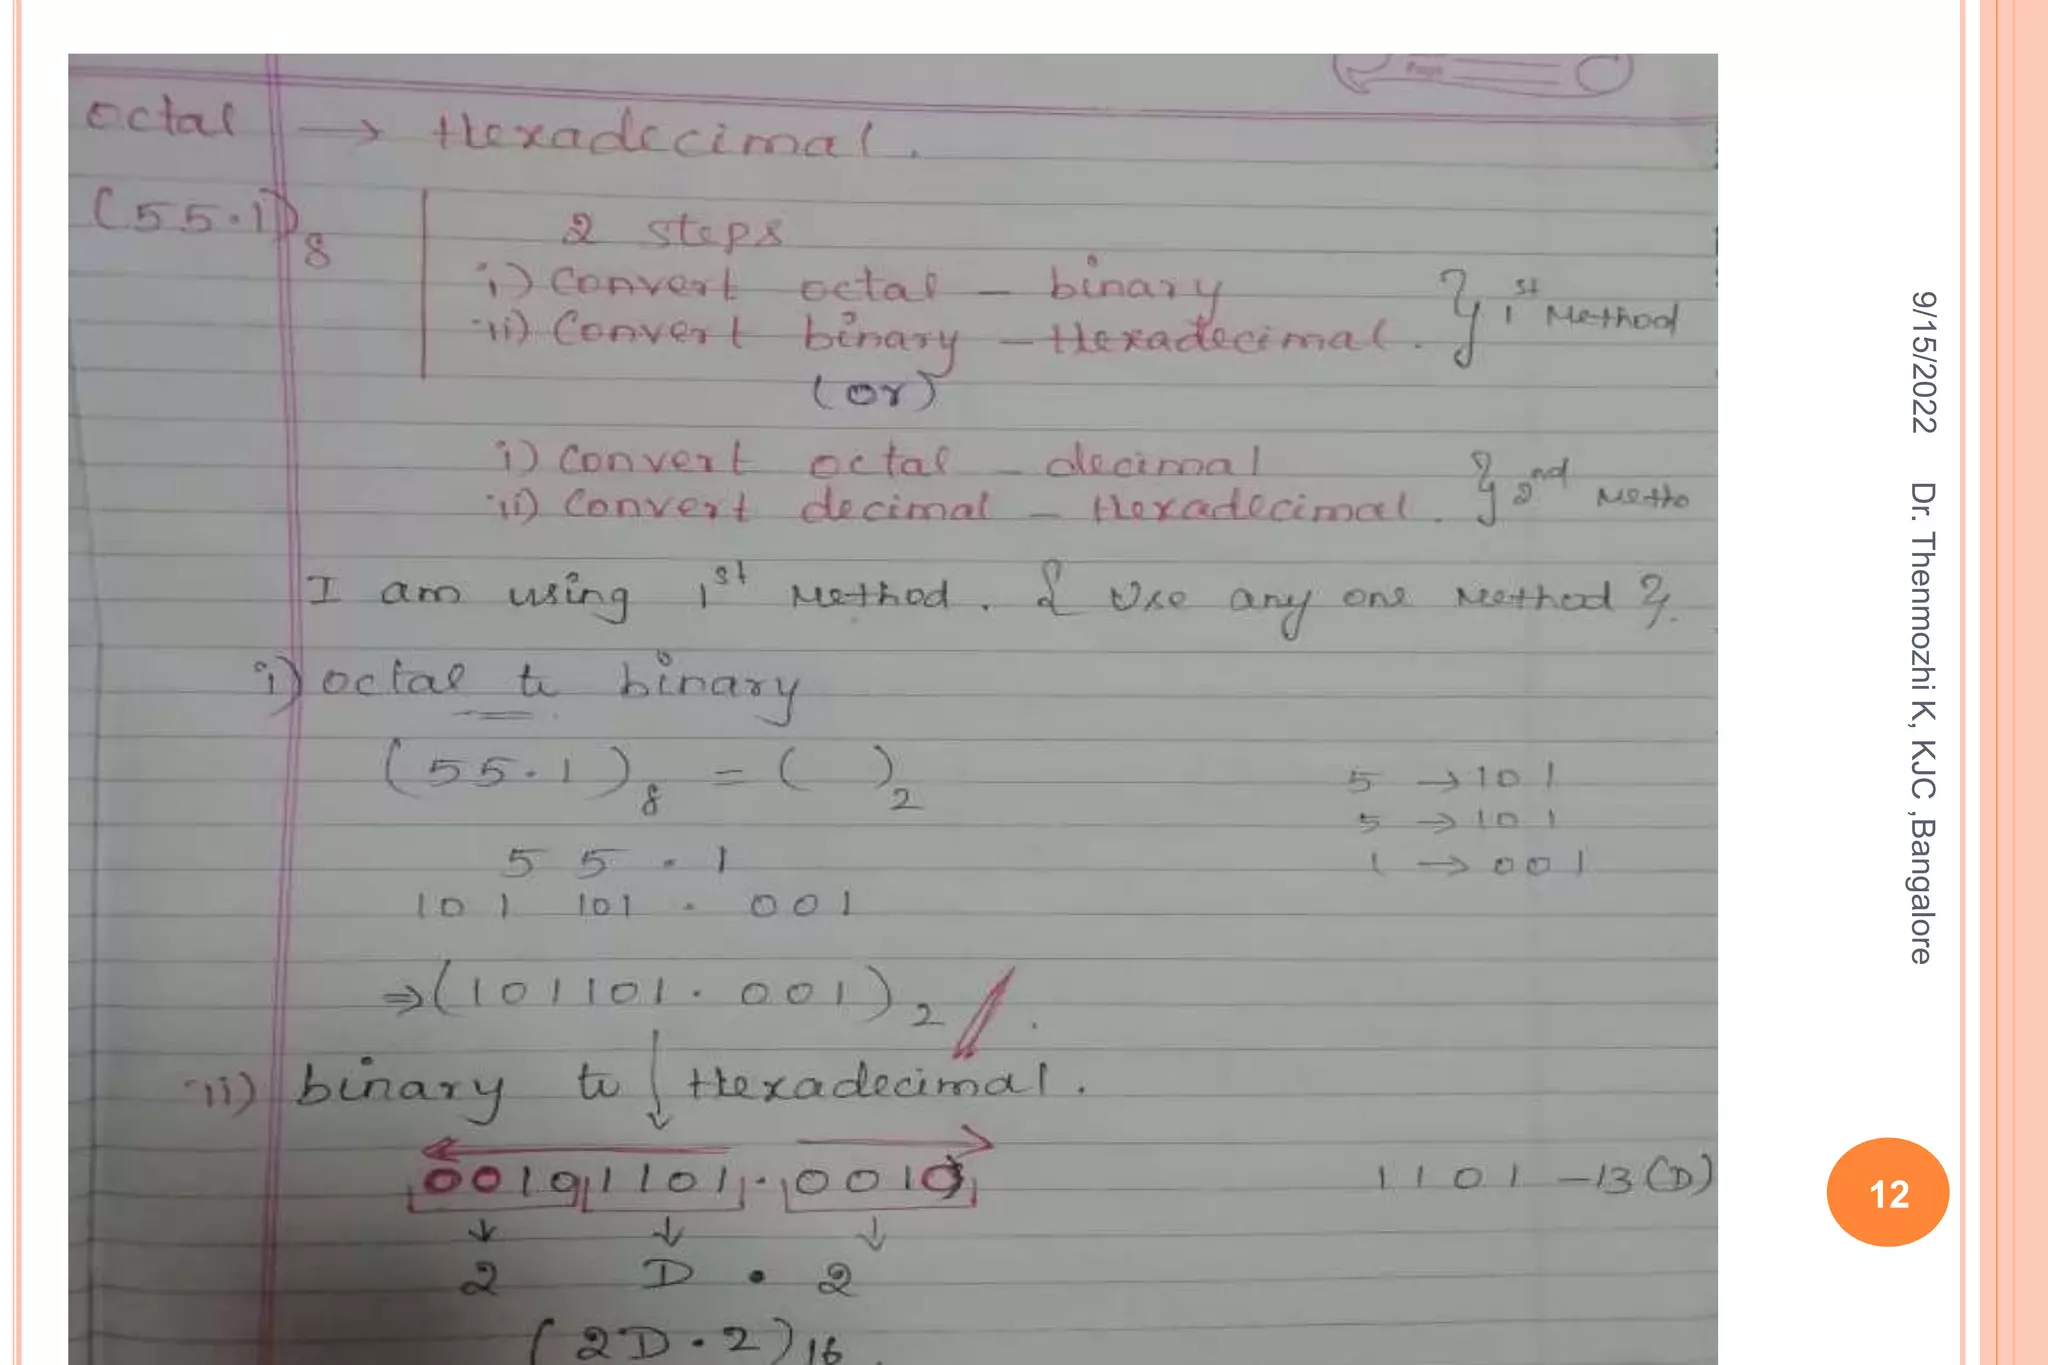 Page
octal → Hexadecimal.
(55.1)8
2 steps
i) Convert octal - binary
ii) Convert binary - Hexadecimal. } 1st Method
(or)
i) Convert octal - decimal
ii) Convert decimal - Hexadecimal. } 2nd Metho
I am using 1st Method. { Use any one Method }.
i) octal to binary
(55.1)8 = ( )2
5 → 101
5 → 101
1 → 001
5 5 . 1
101 101 . 001
⇒ (101101.001)2
ii) binary to Hexadecimal.
00101101.0010
1101 - 13 (D)
2 D . 2
(2D.2)16.
9/15/2022 Dr. Thenmozhi K, KJC ,Bangalore
12